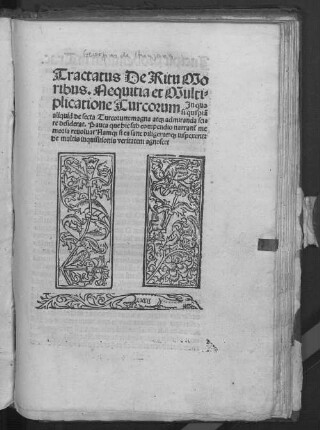 Tractatus De Ritu Mo
ribus. Nequitia et Multi-
plicatione Turcorum In quo
si quispiã
aliquid de secta Turcorum magna atq; admiranda sci-
re desiderat. Pauca que hic sub compendio narrant me
moria revoluat Namq; si ea sane diligenterq; inspexerit
de multis inquisitionis veritatem agnoscet